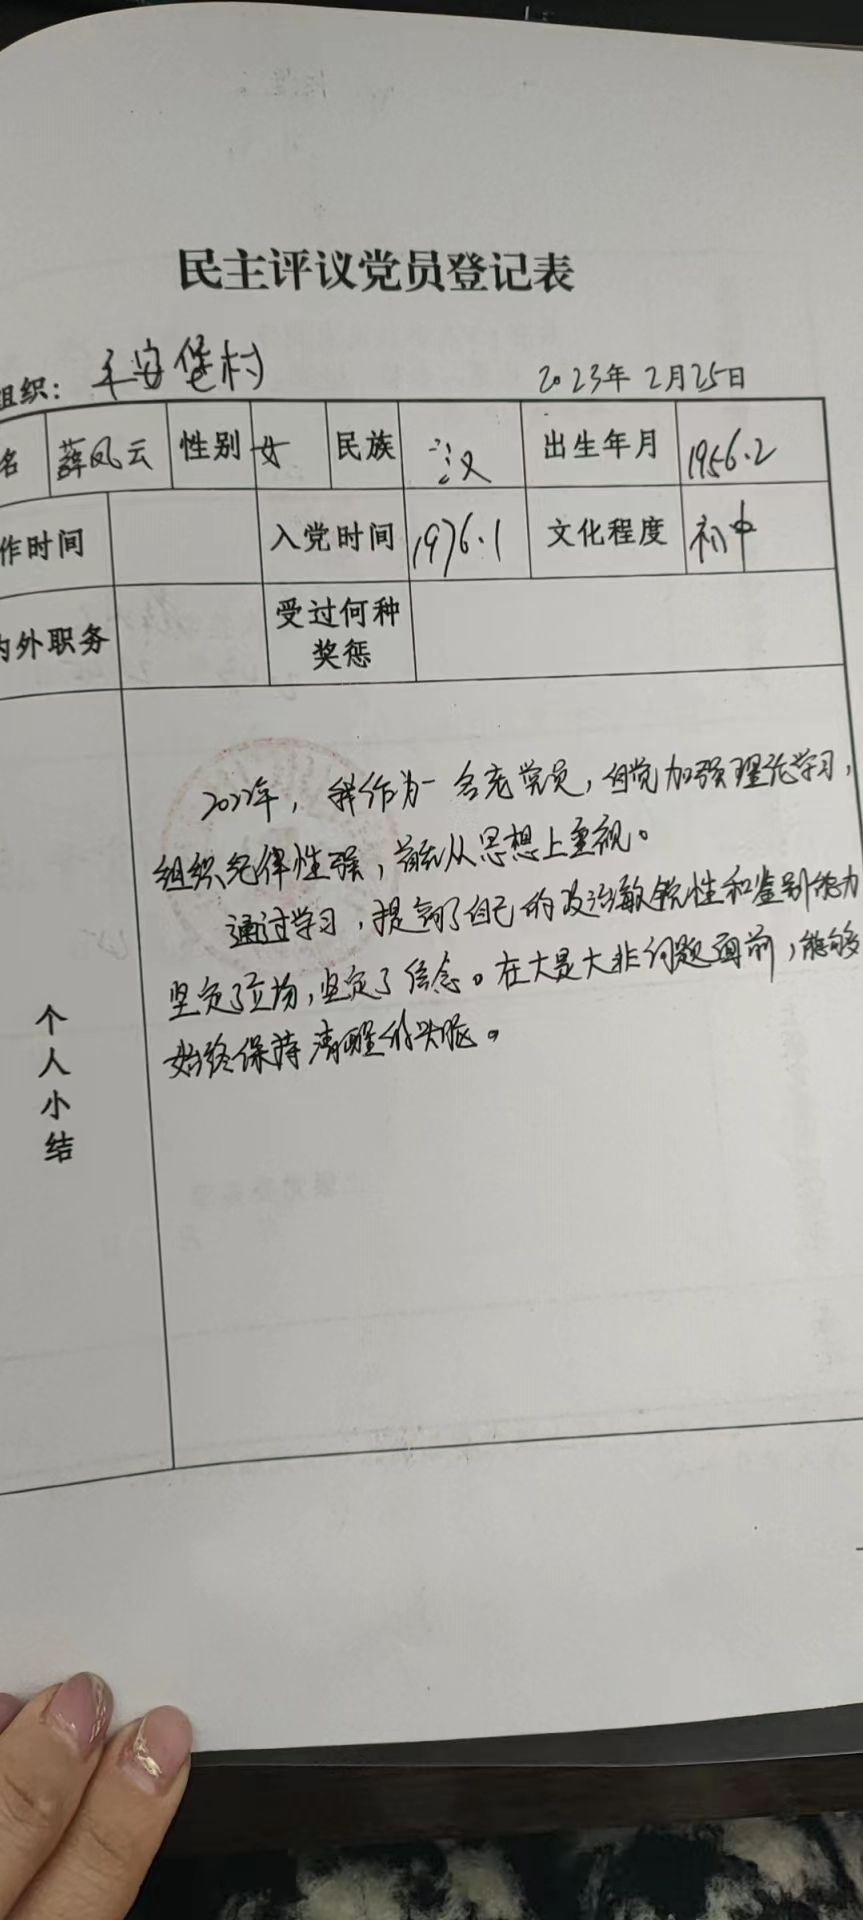 民主评议党员登记表
组织：平安堡村 2023年2月25日
名 薛凤云 性别 女 民族 汉 出生年月 1956.2
作时间 入党时间 1976.1 文化程度 初中
内外职务 受过何种
奖惩
2022年，我作为一名老党员，自觉加强理论学习，
组织纪律性强，首先从思想上重视。
通过学习，提高了自己的政治敏锐性和鉴别能力
坚定了立场，坚定了信念。在大是大非问题面前，能够
始终保持清醒的头脑。
个
人
小
结